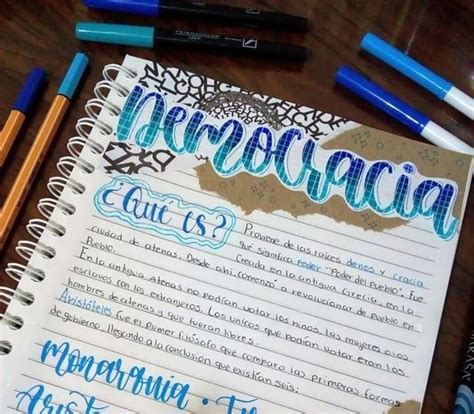 Democracia
¿Qué es?
Proviene de las raices demos y cracia
que significa Poder "Poder del Pueblo". fue
Creada en la antigua Grecia, en la
ciudad de atenas. Desde ahi comenzó a revolucionar de Pueblo en
Pueblo.
En la antigua atenas no podían votar los niños, las mujeres o los
esclavos con los extranjeros. Los unicos que Podían votar eran los
hombres de atenas y que fueran libres.
Aristóteles fue el Primer filósofo que comparo las primeras formas
de gobierno, llegando a la conclusión que existían seis:
Monarquia ·